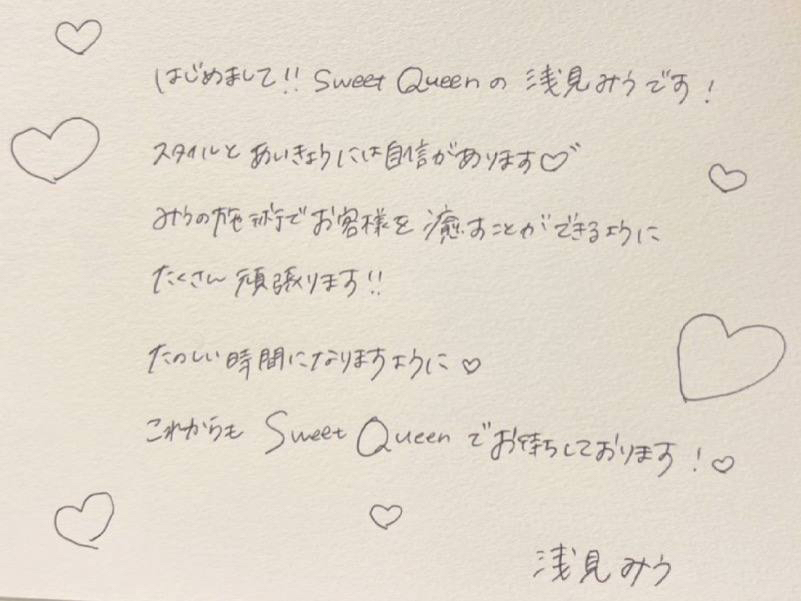 はじめまして!! Sweet Queenの 浅見みうです!
スタイルと あいきょうには自信があります♡
みうの施術でお客様を 癒すことができるように
たくさん 頑張ります!!
たのしい時間になりますように♡
これからも Sweet Queen でお待ちしております!♡
浅見みう